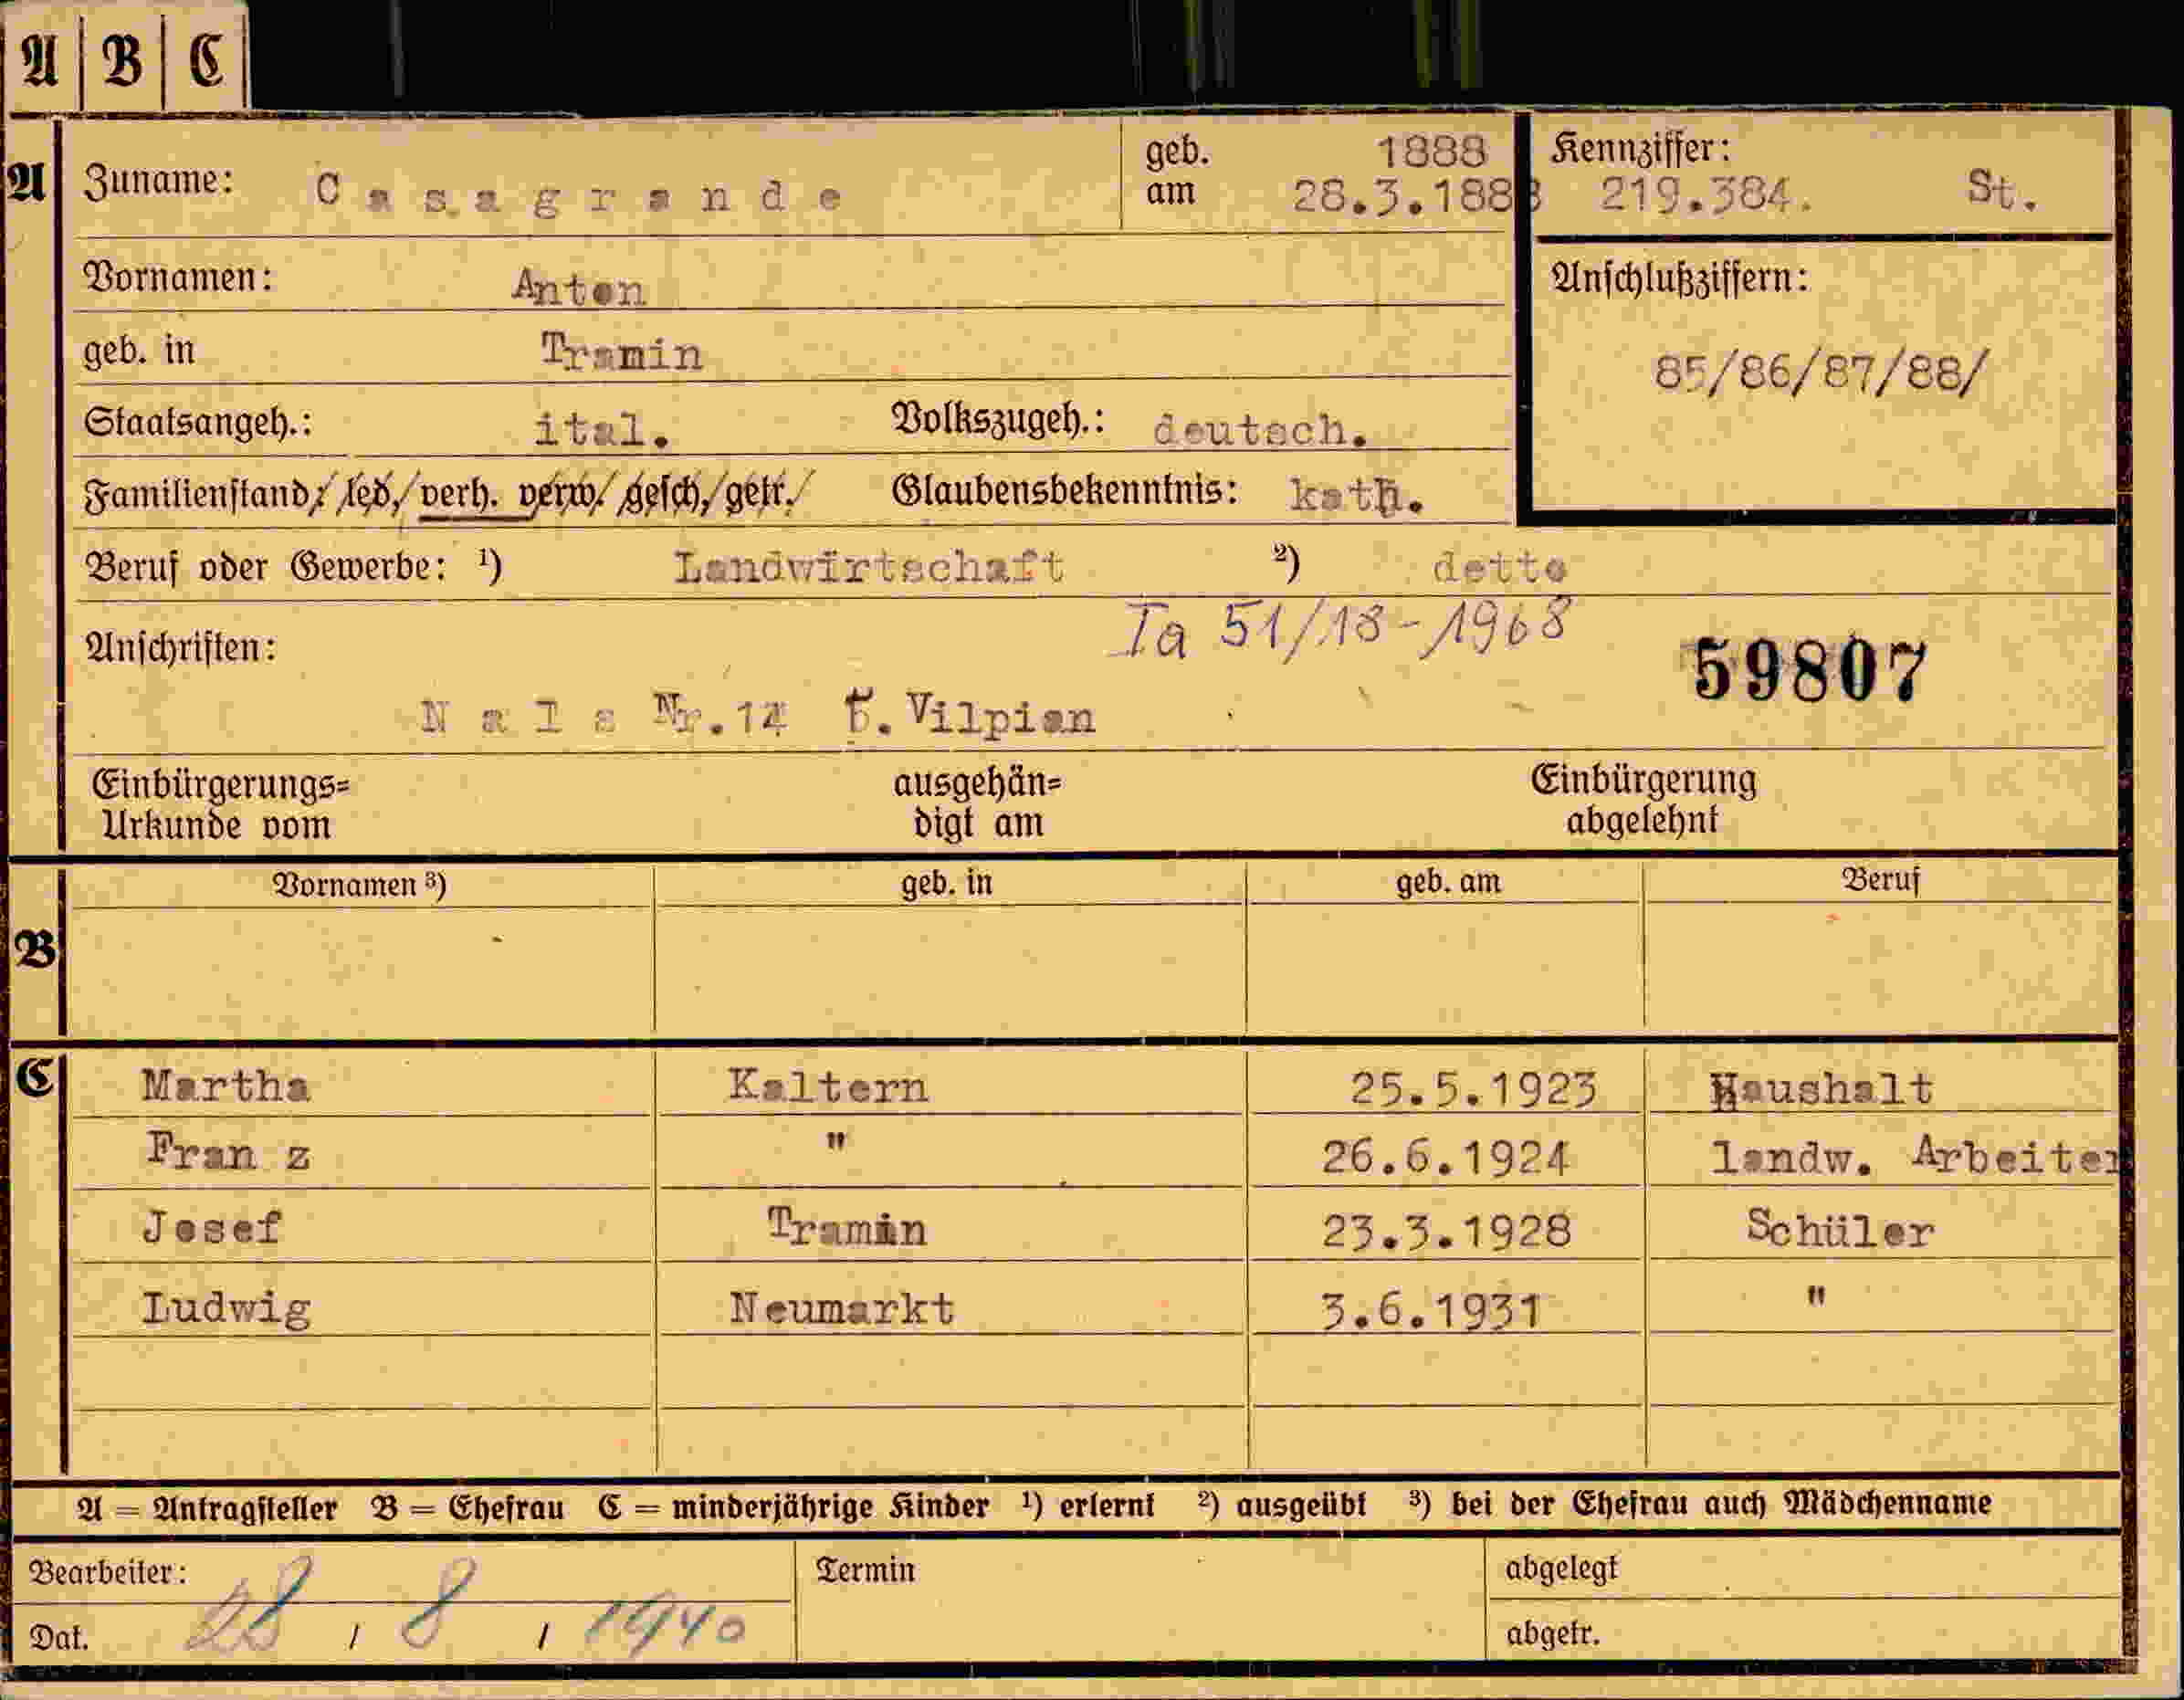 A B C
A Zuname: Casagrande geb. am 1888 28.3.1888 Kennziffer: 219.384. St.
Vornamen: Anton Anschlußziffern:
geb. in Tramin 85/86/87/88/
Staatsangeh.: ital. Volkszugeh.: deutsch.
Familienstand: led, verh. verw. gesch, getr. Glaubensbekenntnis: kath.
Beruf oder Gewerbe: ¹) Landwirtschaft ²) detto
Ia 51/18-1968
Anschriften: 59807
Nals Nr.14 Vilpian
Einbürgerungs= ausgehän= Einbürgerung
Urkunde vom digt am abgelehnt
Vornamen ³) geb. in geb. am Beruf
B
C Martha Kaltern 25.5.1923 Haushalt
Fran z " 26.6.1924 landw. Arbeiter
Josef Tramin 23.3.1928 Schüler
Ludwig Neumarkt 3.6.1931 "
A = Antragsteller B = Ehefrau C = minderjährige Kinder ¹) erlernt ²) ausgeübt ³) bei der Ehefrau auch Mädchenname
Bearbeiter: Termin abgelegt
Dat. 28 / 8 / 1940 abgetr.